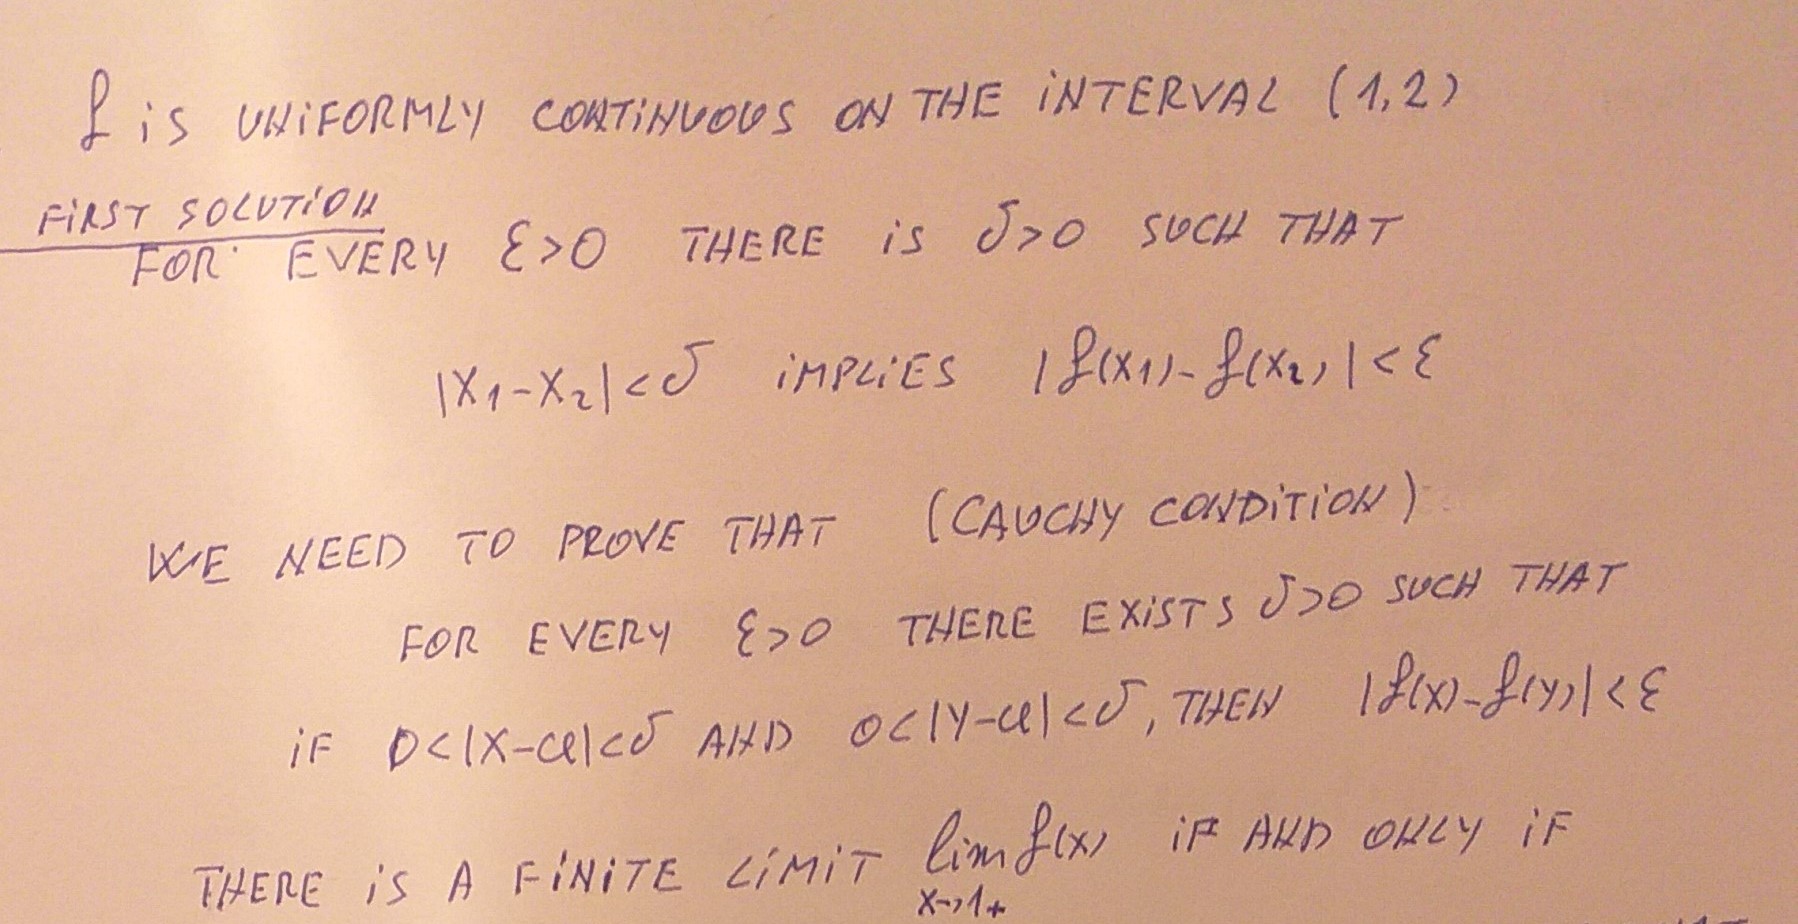 f is UNiFORMLY CONTiNUOUS ON THE iNTERVAL (1,2)
FiRST SOLUTiON
FOR EVERY ε>0 THERE iS δ>0 SUCH THAT
|X₁-X₂|<δ iMPLiES |f(X₁)-f(X₂)|<ε
WE NEED TO PROVE THAT (CAUCHY CONDiTiON)
FOR EVERY ε>0 THERE EXiSTS δ>0 SUCH THAT
iF 0<|X-a|<δ AND 0<|Y-a|<δ, THEN |f(X)-f(Y)|<ε
THERE iS A FiNiTE LiMiT lim f(x) iF AND ONLY iF
X→1+